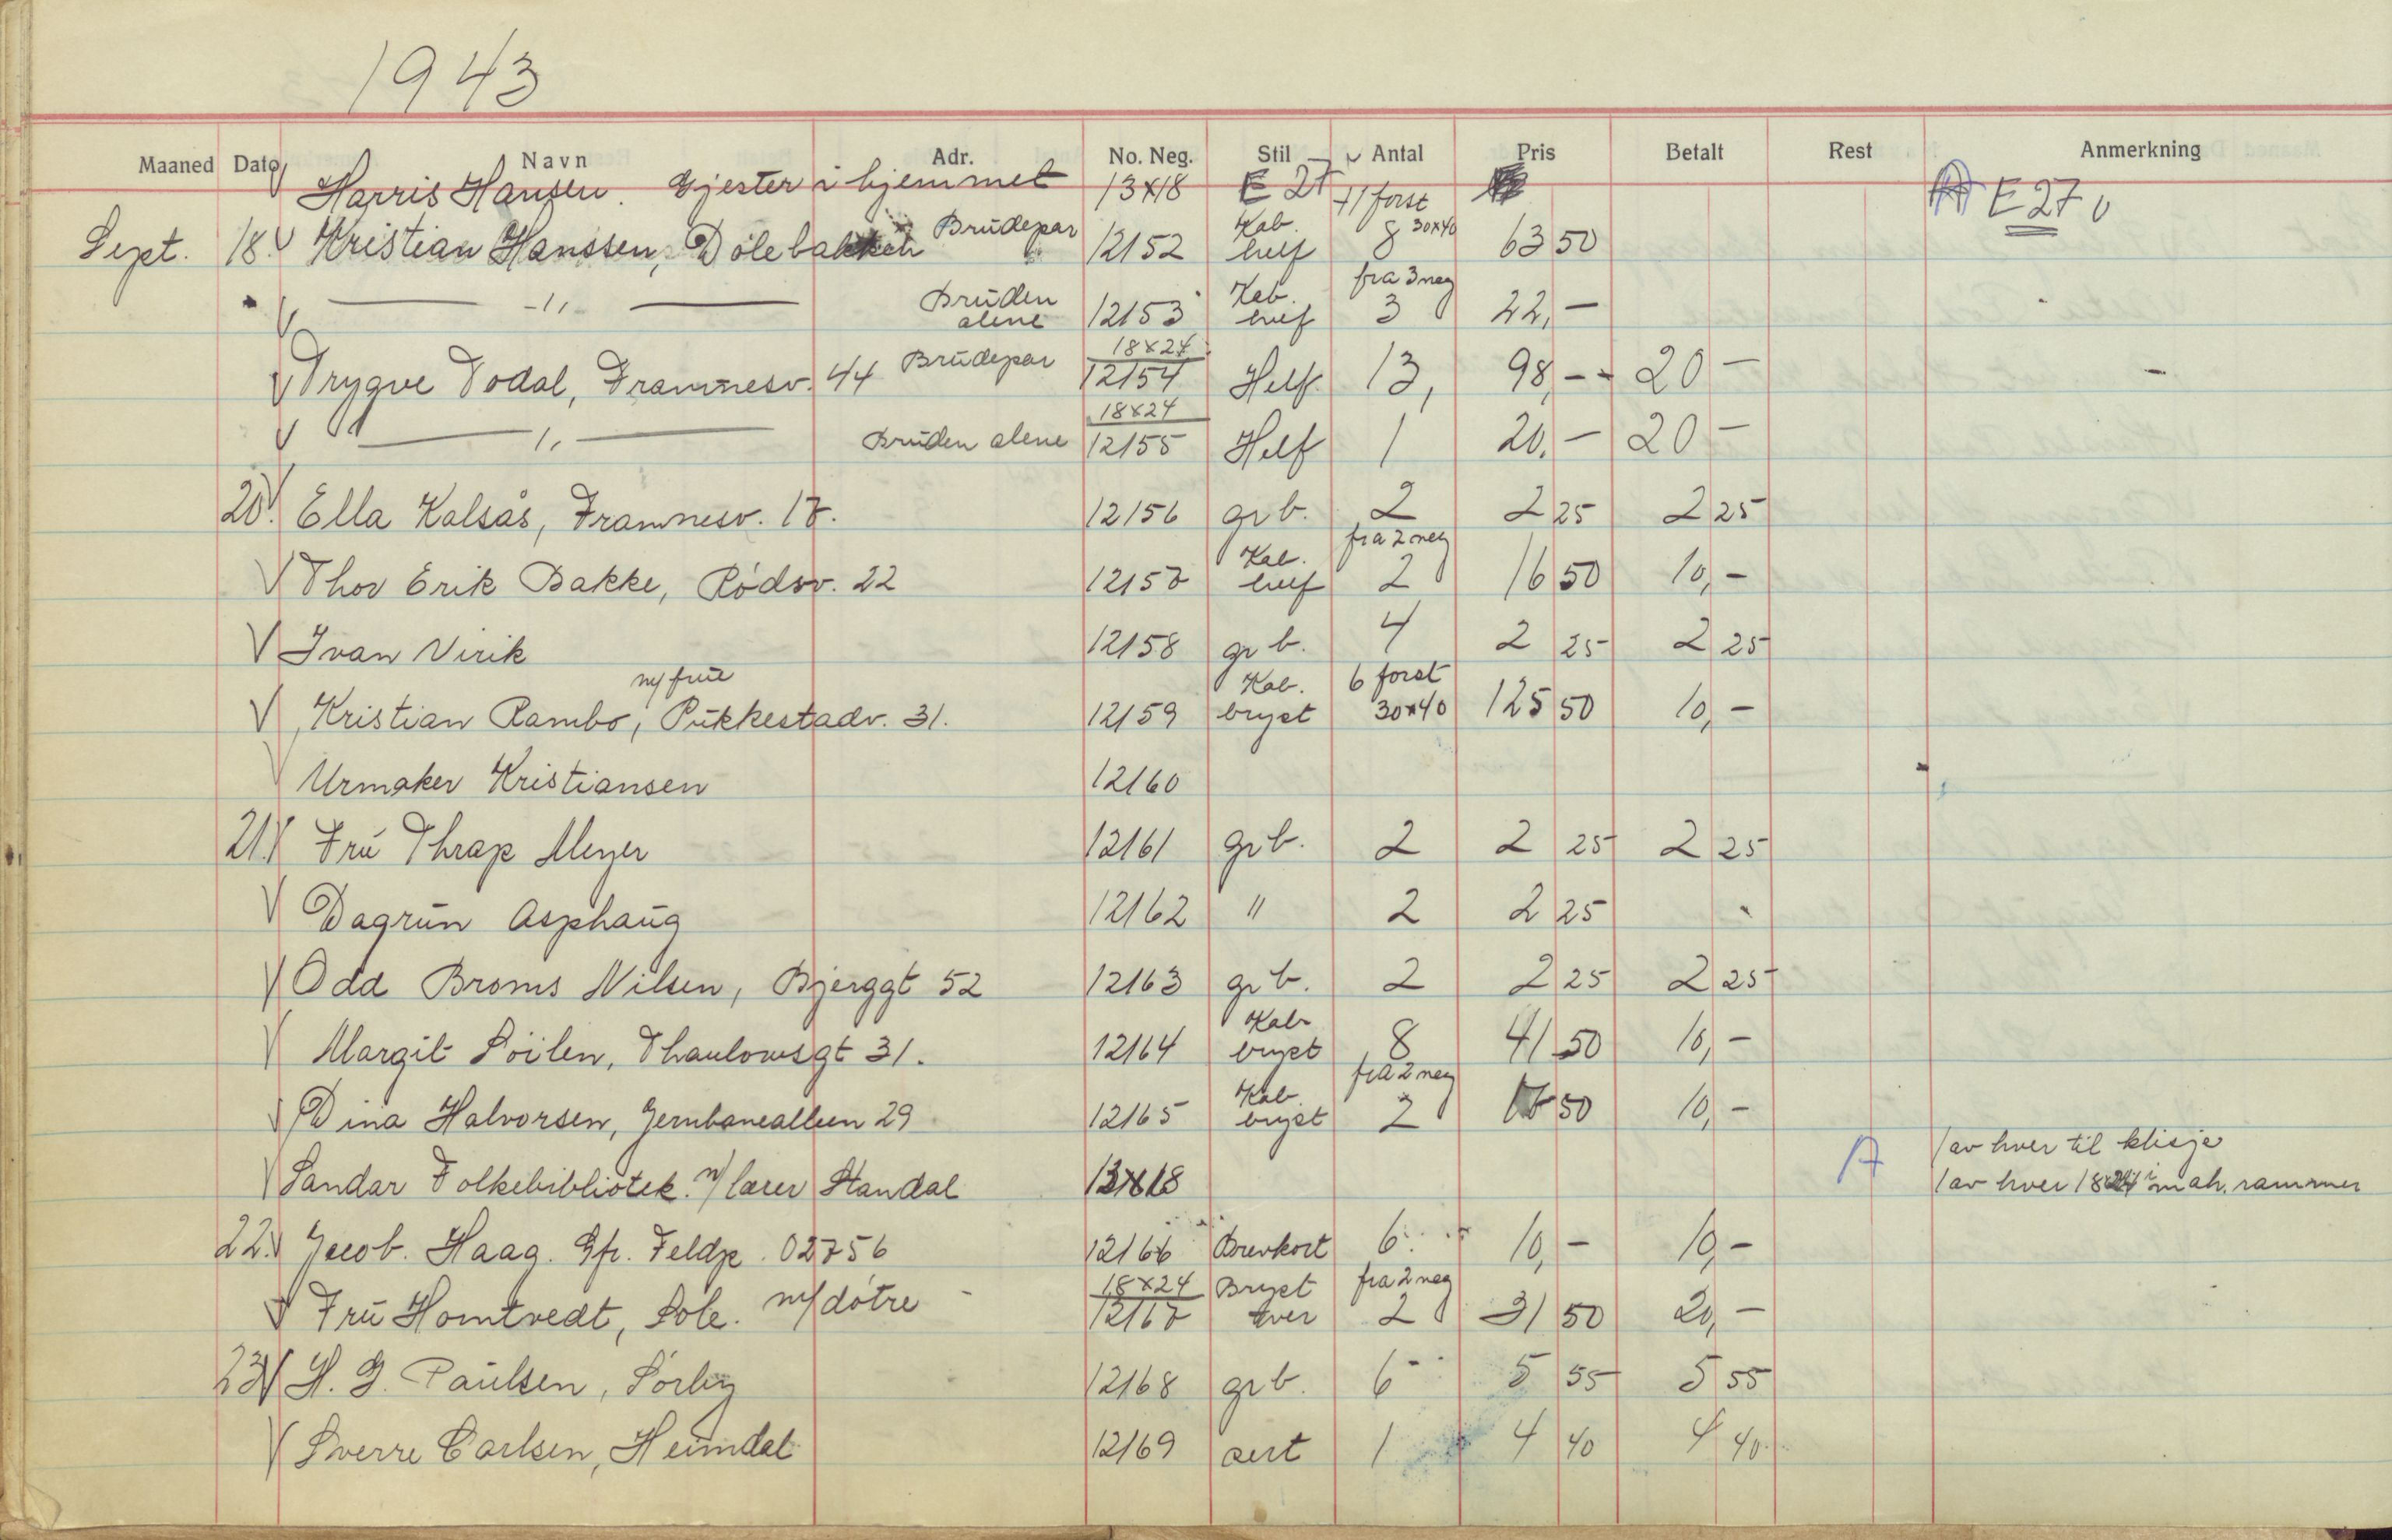 1943
Maaned Dato Navn Adr. No. Neg. Stil Antal Pris Betalt Rest Anmerkning
Harris Hansen. Gjester i hjemmet 13x18 E 27 A E 27
Sept. 18. Kristian Hanssen, Dölebakken Brudepar 12152 Kab. helf + 1 forst 30x40 8 63 50
—— -"- —— Bruden alene 12153 Kab. helf fra 3 neg 3 22,-
Trygve Todal, Framnesv. 44 Brudepar 18x24 12154 Helf 13, 98,- 20 -
—— " —— Bruden alene 18x24 12155 Helf 1 20,- 20 -
20. Ella Kalsås, Framnesv. 17. 12156 gr b. 2 2 25 2 25
Thor Erik Bakke, Rødsv. 22 12157 Kab. helf fra 2 neg 2 16 50 10,-
Ivan Virik 12158 gr b. 4 2 25 2 25
Kristian Rambo, m/frue Pukkestadv. 31. 12159 Kab. bryst 6 forst 30x40 125 50 10,-
Urmaker Kristiansen 12160
21. Fru Thrap Meyer 12161 gr b. 2 2 25 2 25
Dagrun Asphaug 12162 " 2 2 25
Odd Broms Nilsen, Bjerggt 52 12163 gr b. 2 2 25 2 25
Margit Söilen, Thaulowsgt 31. 12164 Kab bryst 8 41 50 10,-
Dina Halvorsen, Jernbanealleen 29 12165 Kab bryst fra 2 neg 2 50 10,-
Sandar Folkebibliotek. v/ lærer Standal 13x18 A 1 av hver til klisje
1 av hver 18x24 i mah. rammer
22. Jacob. Haag. Gfr. Feldp. 02756 12166 Brevkort 6 10,- 10,-
Fru Homtvedt, Sole. m/døtre 18x24 12167 Bryst tver fra 2 neg 2 31 50 20,-
23 H. G. Paulsen, Sörby 12168 gr b. 6 5 55 5 55
Sverre Carlsen, Heimdal 12169 sert 1 4 40 4 40